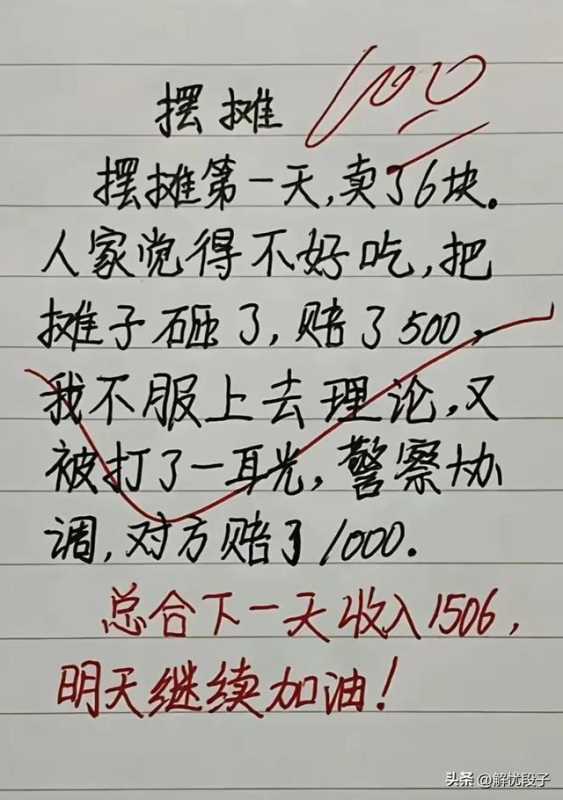 摆摊
100
摆摊第一天,卖了6块。
人家觉得不好吃,把
摊子砸了,赔了500,
我不服上去理论,又
被打了一耳光,警察协
调,对方赔了1000.
总合下一天收入1506,
明天继续加油!
头条@解忧段子